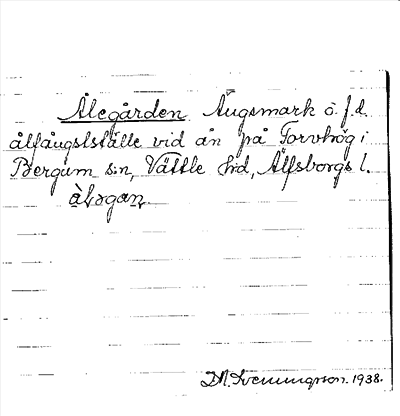 Ålegården Ängsmark o. f.d.
ålfångstställe vid ån på Torvhög i
Bergum sn, Vättle hd, Älfsborgs l.
D.M. Svenungsson. 1938.